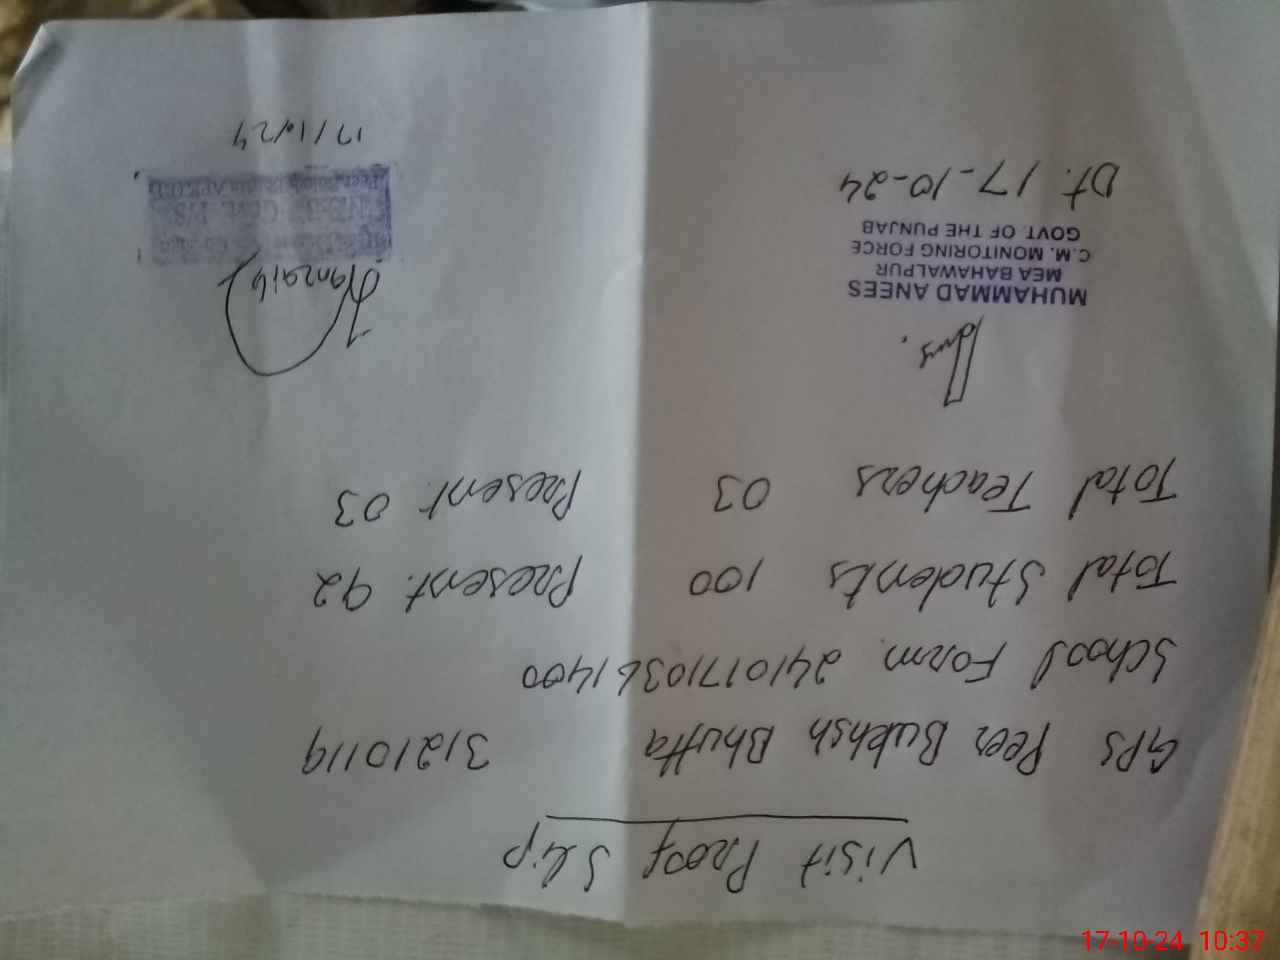 Visit Proof Slip
GPS Peer Bukhsh Bhutta 31210119
School Form. 24101710361400
Total Students 100 Present. 92
Total Teachers 03 Present. 03
MUHAMMAD ANEES
MEA BAHAWALPUR
C.M. MONITORING FORCE
GOVT. OF THE PUNJAB
Dt. 17-10-24
17/10/24
17-10-24 10:37